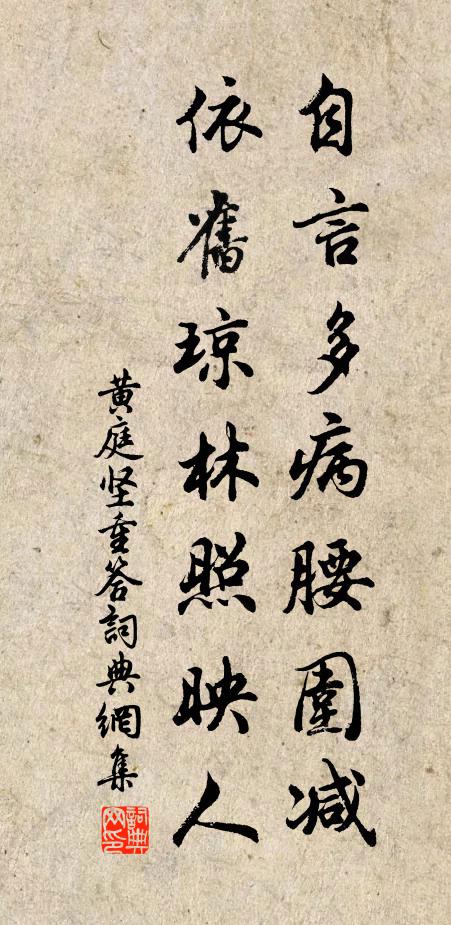 自言多病腰圍减
依舊琼林照映人
黄庭坚重答詞典網集
詞典
网印